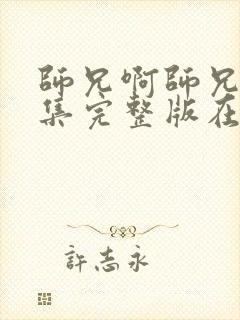 師兄啊師兄
集完整版在
許志永